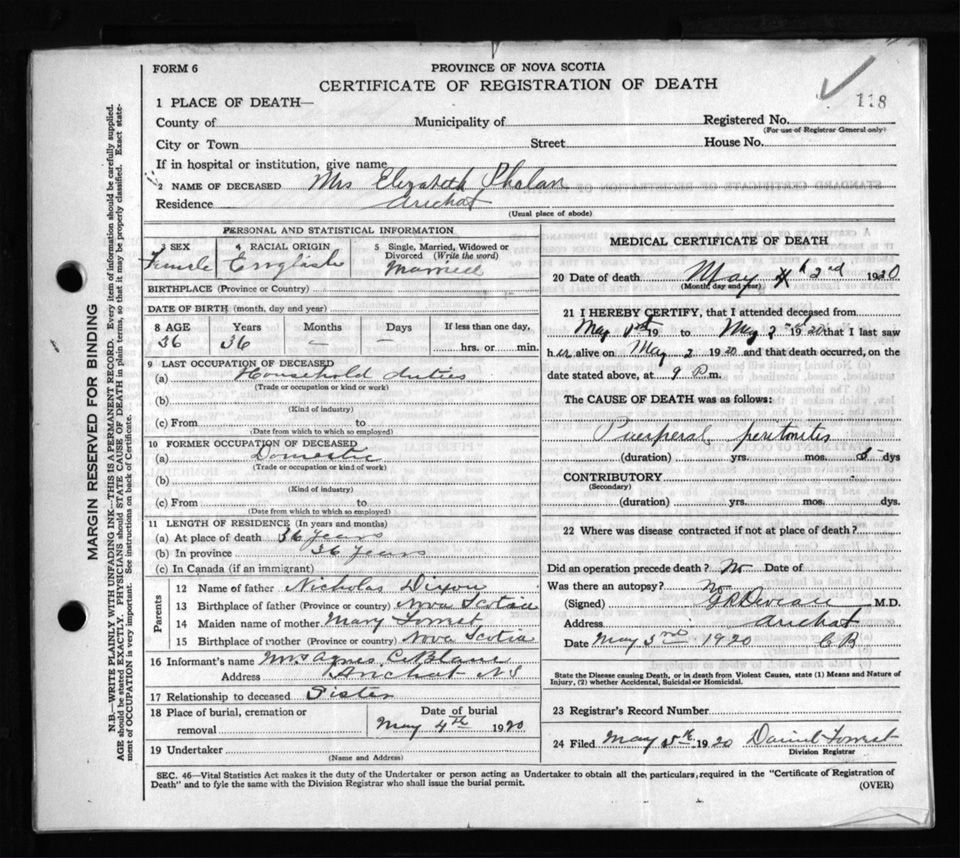 FORM 6
PROVINCE OF NOVA SCOTIA
CERTIFICATE OF REGISTRATION OF DEATH
118
1 PLACE OF DEATH—
County of Municipality of Registered No.
(For use of Registrar General only)
City or Town Street House No.
If in hospital or institution, give name
2 NAME OF DECEASED Mrs Elizabeth Phalan
Residence Arichat
(Usual place of abode)
PERSONAL AND STATISTICAL INFORMATION
3 SEX 4 RACIAL ORIGIN 5 Single, Married, Widowed or Divorced (Write the word)
Female English Married
BIRTHPLACE (Province or Country)
DATE OF BIRTH (month, day and year)
8 AGE Years Months Days If less than one day,
36 36 — — hrs. or min.
9 LAST OCCUPATION OF DECEASED
(a) Household duties
(Trade or occupation or kind or work)
(b)
(Kind of industry)
(c) From to
(Date from which to which so employed)
10 FORMER OCCUPATION OF DECEASED
(a) Domestic
(Trade or occupation or kind of work)
(b)
(Kind of industry)
(c) From to
(Date from which to which so employed)
11 LENGTH OF RESIDENCE (In years and months)
(a) At place of death 36 years
(b) In province 36 years
(c) In Canada (if an immigrant)
Parents
12 Name of father Nicholas Dixon
13 Birthplace of father (Province or country) Nova Scotia
14 Maiden name of mother Mary
15 Birthplace of mother (Province or country) Nova Scotia
16 Informant's name Mrs Agnes
Address Arichat NS
17 Relationship to deceased Sister
18 Place of burial, cremation or removal Date of burial
May 4th 1920
19 Undertaker
(Name and Address)
MEDICAL CERTIFICATE OF DEATH
20 Date of death May 2nd 1920
(Month, day and year)
21 I HEREBY CERTIFY, that I attended deceased from
May 1st 19 to May 2nd 1920 that I last saw
her alive on May 2 1920 and that death occurred, on the
date stated above, at 9 P.m.
The CAUSE OF DEATH was as follows:
Puerperal peritonitis
(duration) yrs. mos. dys
CONTRIBUTORY
(Secondary)
(duration) yrs. mos. dys.
22 Where was disease contracted if not at place of death?
Did an operation precede death? No Date of
Was there an autopsy? No
(Signed) M.D.
Address Arichat
Date May 3rd 1920 C B
State the Disease causing Death, or in death from Violent Causes, state (1) Means and Nature of Injury, (2) whether Accidental, Suicidal or Homicidal.
23 Registrar's Record Number
24 Filed May 5th 1920 Daniel
Division Registrar
SEC. 46—Vital Statistics Act makes it the duty of the Undertaker or person acting as Undertaker to obtain all the particulars, required in the "Certificate of Registration of
Death" and to fyle the same with the Division Registrar who shall issue the burial permit.
(OVER)
MARGIN RESERVED FOR BINDING
N.B.—WRITE PLAINLY WITH UNFADING INK—THIS IS A PERMANENT RECORD. Every item of information should be carefully supplied.
AGE should be stated EXACTLY. PHYSICIANS should STATE CAUSE OF DEATH in plain terms, so that it may be properly classified. Exact state-
ment of OCCUPATION is very important. See instructions on back of Certificate.